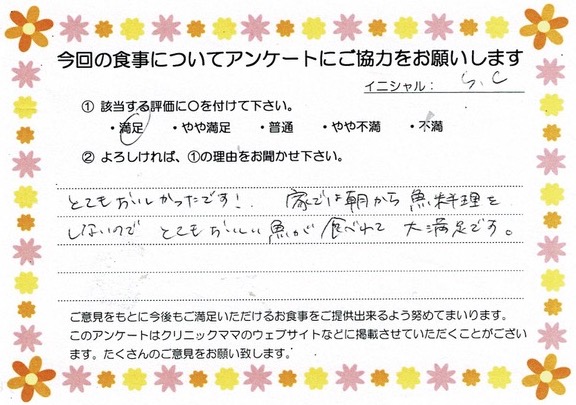 今回の食事についてアンケートにご協力をお願いします
イニシャル：
① 該当する評価に○を付けて下さい。
・満足　・やや満足　・普通　・やや不満　・不満
② よろしければ、①の理由をお聞かせ下さい。
とてもおいしかったです！　家では朝から魚料理を
しないので とてもおいしい魚が 食べれて 大満足です。
ご意見をもとに今後もご満足いただけるお食事をご提供出来るよう努めてまいります。
このアンケートはクリニックママのウェブサイトなどに掲載させていただくことがござい
ます。たくさんのご意見をお願い致します。